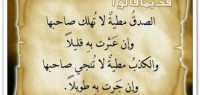 قديما قالوا
الصدقُ مطيةٌ لا تُهلك صاحبها
وإن عثرت به قليلاً
والكذبُ مطيةٌ لا تنجي صاحبها
وإن جرت به طويلاً.